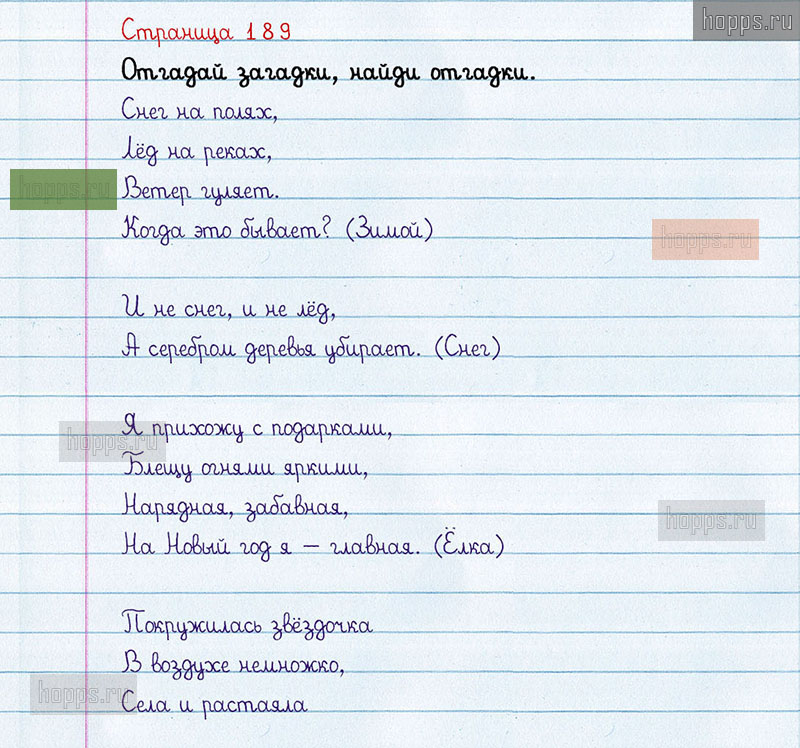 hopps.ru
Страница 189
Отгадай загадки, найди отгадки.
Снег на полях,
Лёд на реках,
hopps.ru
Ветер гуляет.
Когда это бывает? (Зимой)
hopps.ru
И не снег, и не лёд,
А серебром деревья убирает. (Снег)
Я прихожу с подарками,
hopps.ru
Блещу огнями яркими,
Нарядная, забавная,
hopps.ru
На Новый год я – главная. (Ёлка)
Покружилась звёздочка
В воздухе немножко,
hopps.ru
Села и растаяла